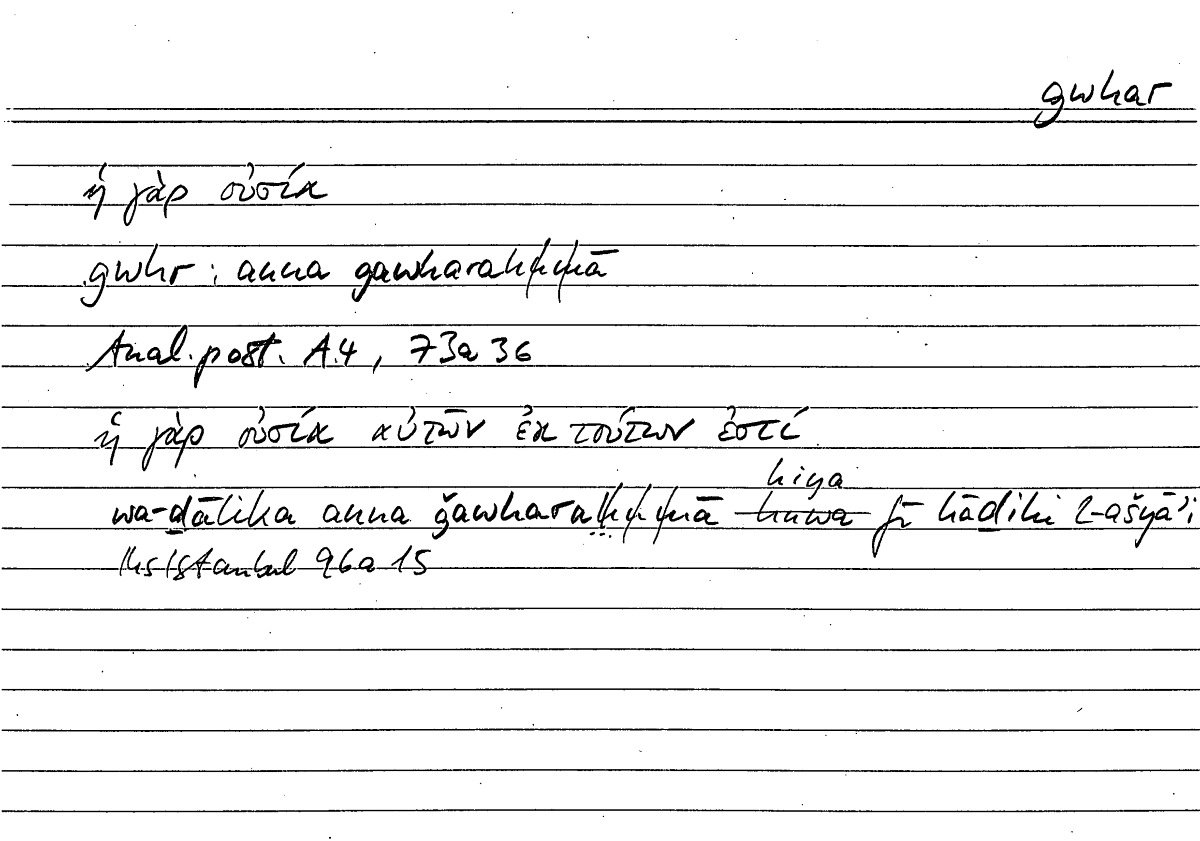 gwhar
ἡ γὰρ οὐσία
gwhr : anna gawharahā
Anal. post. A.4, 73a 36
ἡ γὰρ οὐσία αὐτῶν ἐκ τούτων ἐστί
hiya
wa-ḏālika anna ǧawharahā huwa fī hāḏihi l-ašyāʾi
Hs Istanbul 96a 15